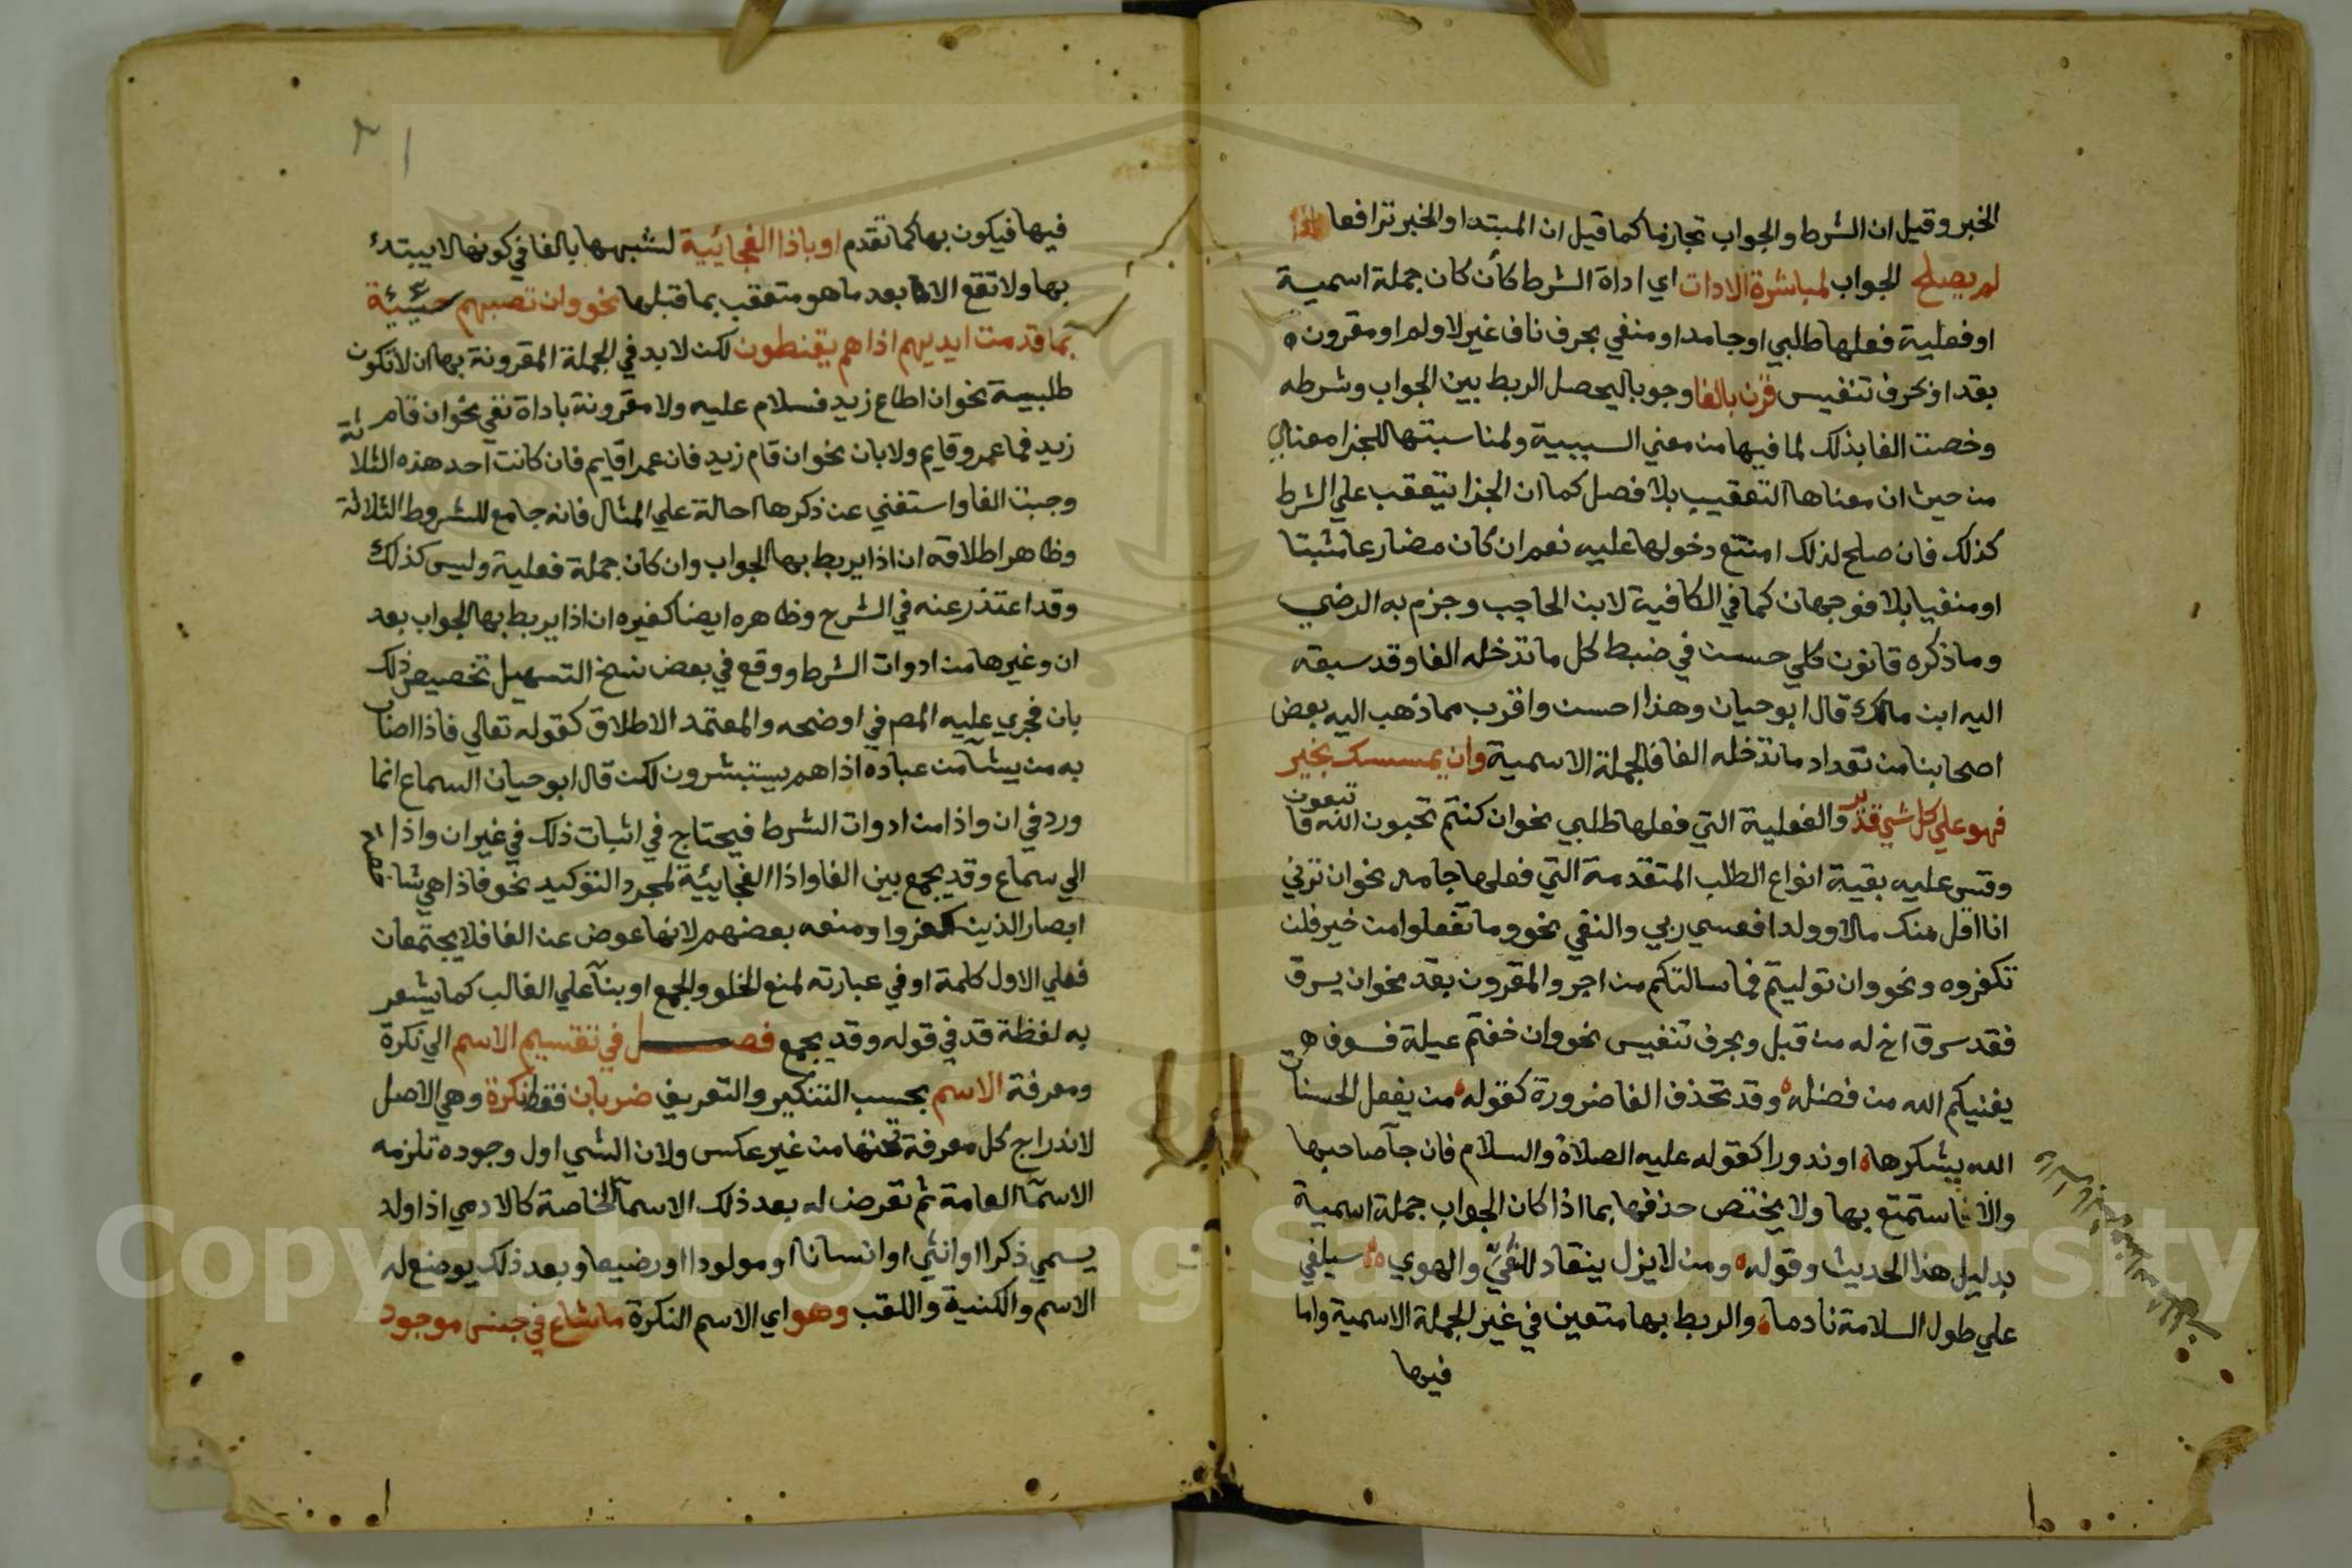 الخبر وقيل ان الشرط والجواب تجازما كما قيل ان المبتدا والخبر ترافعا اذا
لم يصلح الجواب لمباشرة الادات اي اداة الشرط كأن كان جملة اسمية
او فعلية فعلها طلبي او جامد او منفي بحرف ناف غير لا ولم او مقرون
بقد او بحرف تنفيس قرن بالفا وجوبا ليحصل الربط بين الجواب وشرطه
وخصت الفا بذلك لما فيها من معني السببية ولمناسبتها للجزا معنا
من حيث ان معناها التعقيب بلا فصل كما ان الجزا يتعقب علي الشرط
كذلك فان صلح لذلك امتنع دخولها عليه نعم ان كان مضارعا مثبتا
او منفيا بلا فوجهان كما في الكافية لابن الحاجب وجزم به الرضي
وما ذكره قانون كلي حسن في ضبط كل ما تدخله الفا وقد سبقه
اليه ابن مالك قال ابو حيان وهذا احسن واقرب مما ذهب اليه بعض
اصحابنا من تعداد ما تدخله الفا فالجملة الاسمية وان يمسسك بخير
فهو علي كل شي قدير والفعلية التي فعلها طلبي نحو ان كنتم تحبون الله فاتبعون
وقس عليه بقية انواع الطلب المتقدمة التي فعلها جامد نحو ان ترني
انا اقل منك مالا وولدا فعسي ربي والنفي نحو وما تفعلوا من خير فلن
تكفروه ونحو وان توليتم فما سالتكم من اجر والمقرون بقد نحو ان يسرق
فقد سرق اخ له من قبل وبحرف تنفيس نحو وان خفتم عيلة فسوف
يغنيكم الله من فضله وقد تحذف الفا ضرورة كقوله من يفعل الحسنات
الله يشكرها او ندورا كقوله عليه الصلاة والسلام فان جآ صاحبها
والا استمتع بها ولا يختص حذفها بما اذا كان الجواب جملة اسمية
بدليل هذا الحديث وقوله ومن لا يزل ينقاد للغيّ والهوي سيلفي
علي طول السلامة نادما والربط بها متعين في غير الجملة الاسمية واما
فيها
فيها فيكون بها كما تقدم او باذا الفجائية لشبهها بالفا في كونها لا يبتدئ
بها ولا تقع الا بعد ما هو متعقب بما قبلها نحو وان تصبهم سيئة
بما قدمت ايديهم اذا هم يقنطون لكن لا بد في الجملة المقرونة بها ان لا تكون
طلبية نحو ان اطاع زيد فسلام عليه ولا مقرونة باداة نفي نحو ان قام
زيد فما عمرو قايم ولا بان نحو ان قام زيد فان عمرا قايم فان كانت احد هذه الثلاثة
وجبت الفا واستغني عن ذكرها احالة علي المثال فانه جامع للشروط الثلاثة
وظاهر اطلاقه ان اذا يربط بها الجواب وان كان جملة فعلية وليس كذلك
وقد اعتذر عنه في الشرح وظاهره ايضا كغيره ان اذا يربط بها الجواب بعد
ان وغيرها من ادوات الشرط ووقع في بعض نسخ التسهيل تخصيص ذلك
بان فجري عليه المص في اوضحه والمعتمد الاطلاق كقوله تعالي فاذا اصاب
به من يشآ من عباده اذا هم يستبشرون لكن قال ابو حيان السماع انما
ورد في ان واذا من ادوات الشرط فيحتاج في اثبات ذلك في غير ان واذا
الي سماع وقد يجمع بين الفا واذا الفجايية لمجرد التوكيد نحو فاذا هي شاخصة
ابصار الذين كفروا ومنعه بعضهم لانها عوض عن الفا فلا يجتمعان
فعلي الاول كلمة او في عبارته لمنع الخلو والجمع او بنآ علي الغالب كما يشعر
به لفظة قد في قوله وقد يجمع فصل في تقسيم الاسم الي نكرة
ومعرفة الاسم بحسب التنكير والتعريف ضربان فقط نكرة وهي الاصل
لاندراج كل معرفة تحتها من غير عكس ولان الشي اول وجوده تلزمه
الاسمآ العامة ثم تعرض له بعد ذلك الاسمآ الخاصة كالادمي اذا ولد
يسمي ذكرا او انثي او انسانا او مولودا او رضيعا وبعد ذلك يوضع له
الاسم والكنية واللقب وهو اي الاسم النكرة ما شاع في جنس موجود
Copyright © King Saud University